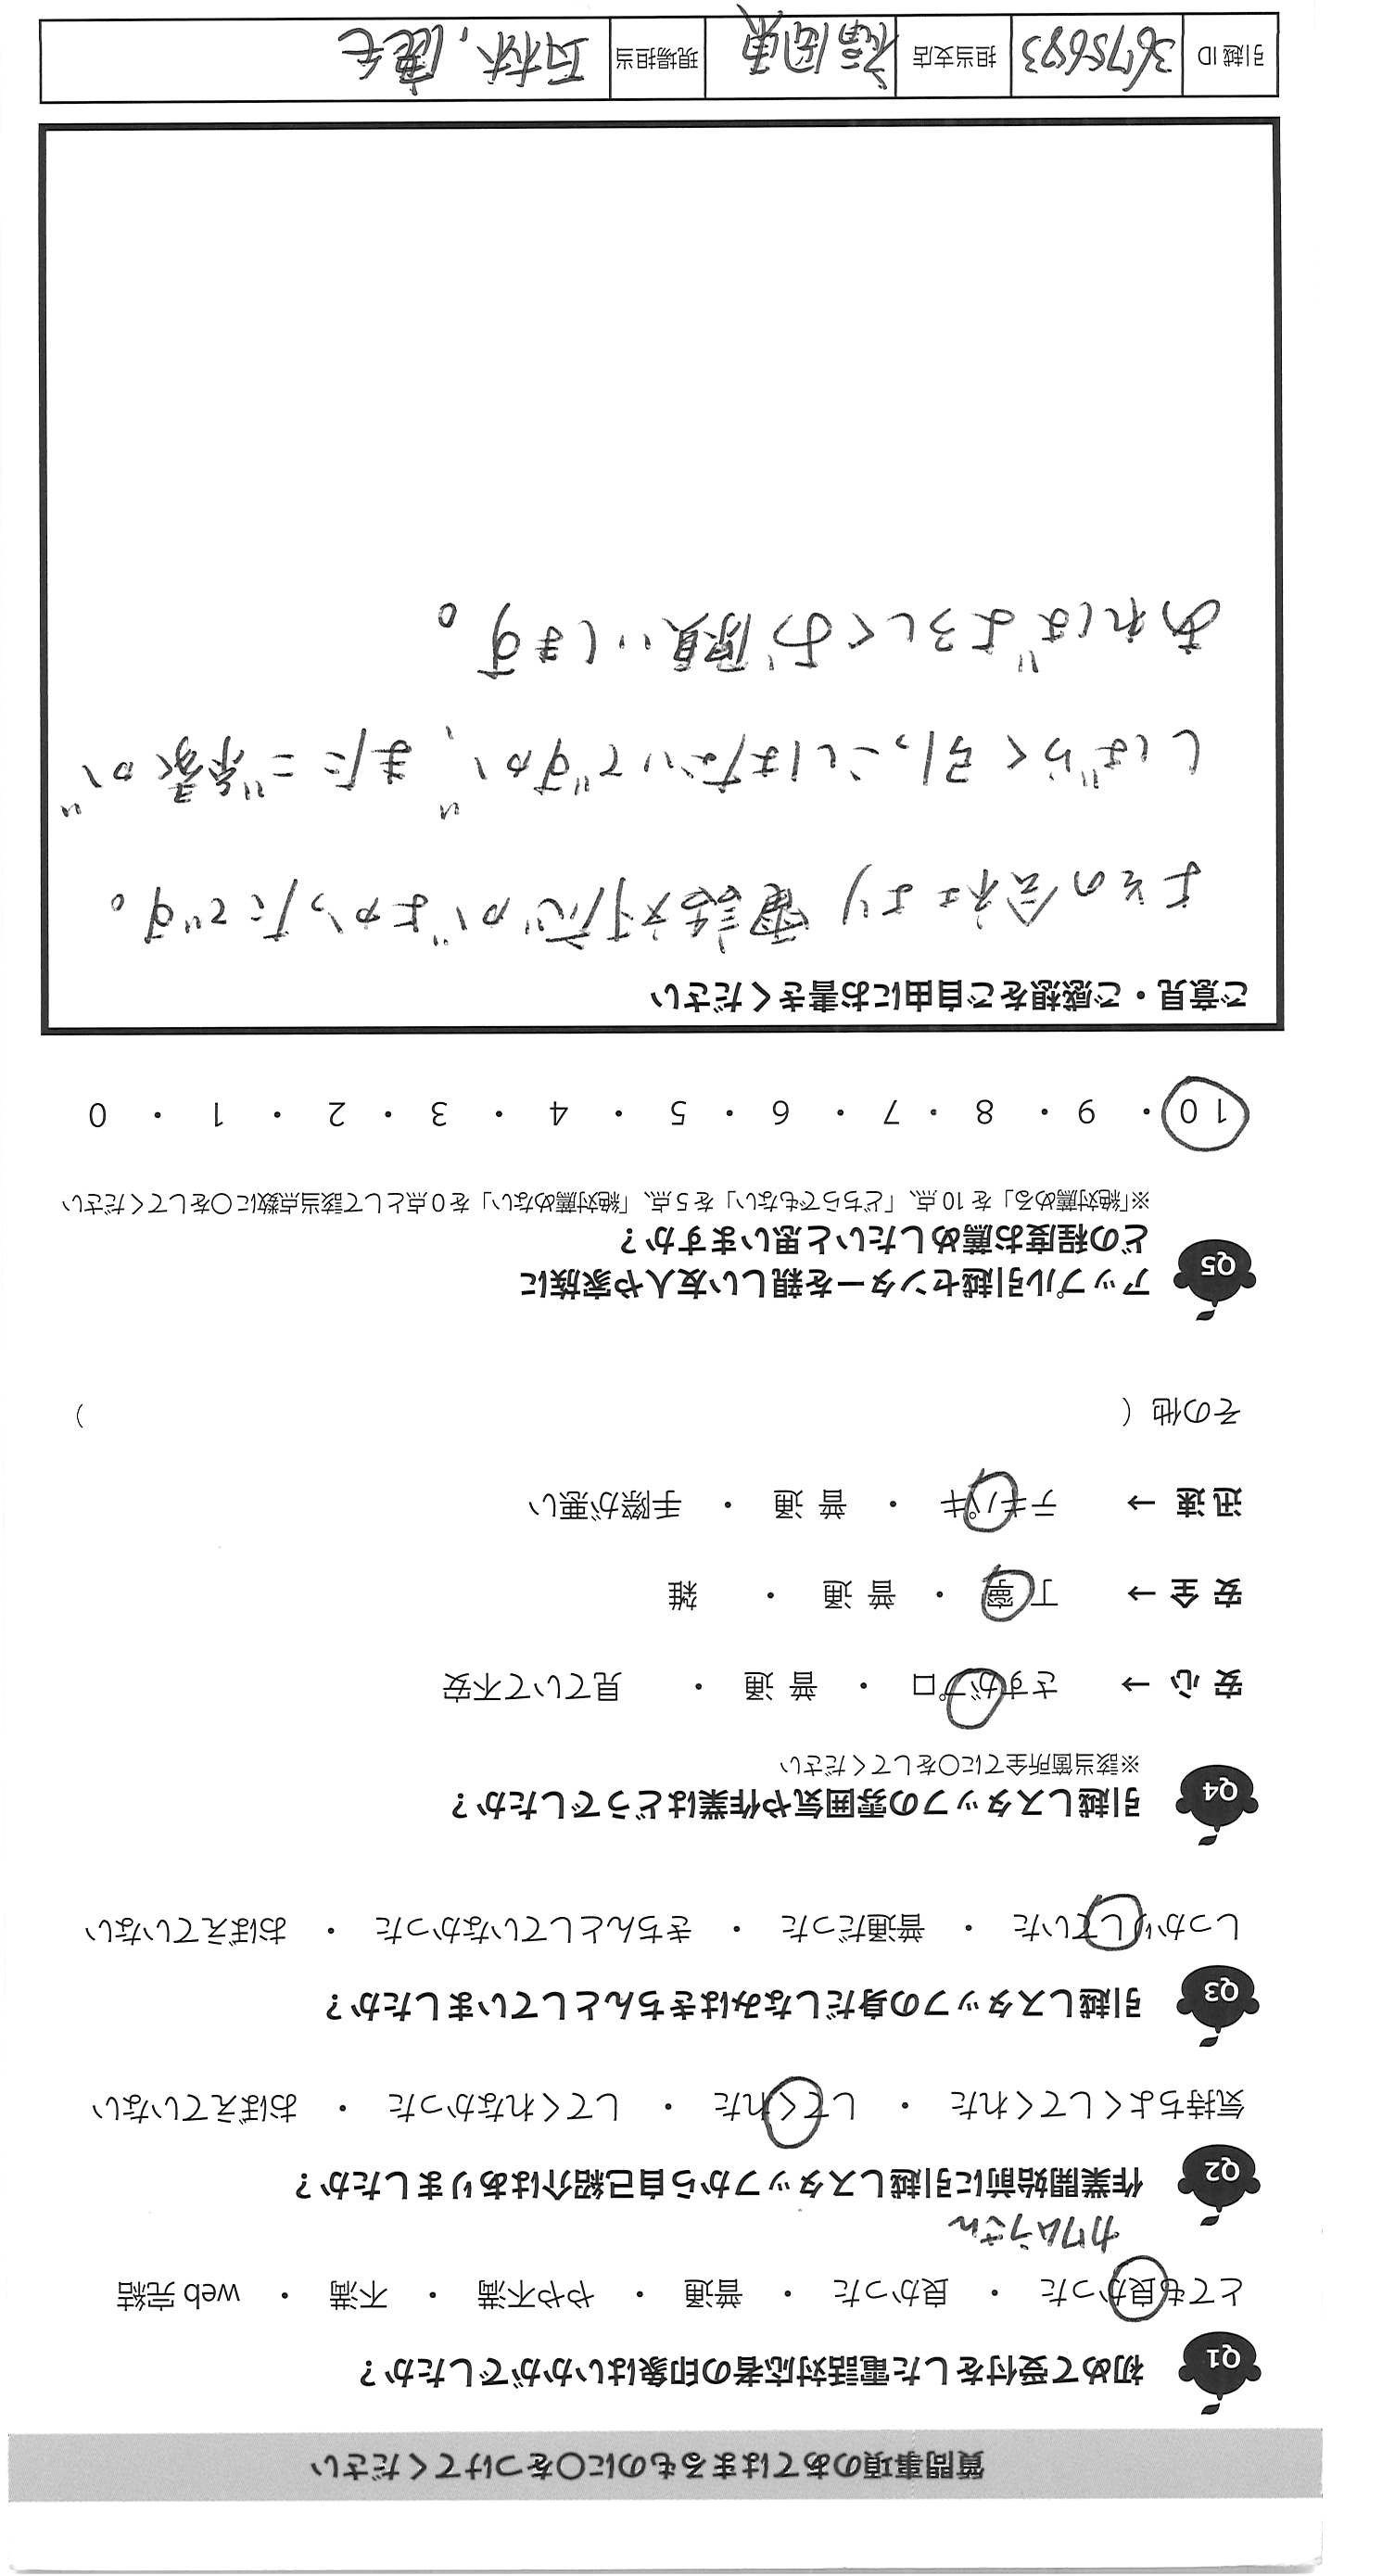 質問事項のあてはまるものに〇をつけてください
Q1 初めて受付をした電話対応者の印象はいかがでしたか？
とても良かった ・ 良かった ・ 普通 ・ やや不満 ・ 不満 ・ web 完結
カワムラさん
Q2 作業開始前に引越しスタッフから自己紹介はありましたか？
気持ちよくしてくれた ・ してくれた ・ してくれなかった ・ おぼえていない
Q3 引越しスタッフの身だしなみはきちんとしていましたか？
しっかりしていた ・ 普通だった ・ きちんとしていなかった ・ おぼえていない
Q4 引越しスタッフの雰囲気や作業はどうでしたか？
※該当箇所全てに〇をしてください
安 心 → さすがプロ ・ 普 通 ・ 見ていて不安
安 全 → 丁 寧 ・ 普 通 ・ 雑
迅 速 → テキパキ ・ 普 通 ・ 手際が悪い
その他（ ）
Q5 アップル引越センターを親しい友人や家族に
どの程度お薦めしたいと思いますか？
※「絶対薦める」を 10 点、「どちらでもない」を 5 点、「絶対薦めない」を 0 点として該当点数に〇をしてください
10 ・ 9 ・ 8 ・ 7 ・ 6 ・ 5 ・ 4 ・ 3 ・ 2 ・ 1 ・ 0
ご意見・ご感想をご自由にお書きください
よその会社より電話対応がよかったです。
しばらく引っこしはないですが、またご縁が
あればよろしくお願いします。
引越 ID 3675683 担当支店 福岡東 現場担当